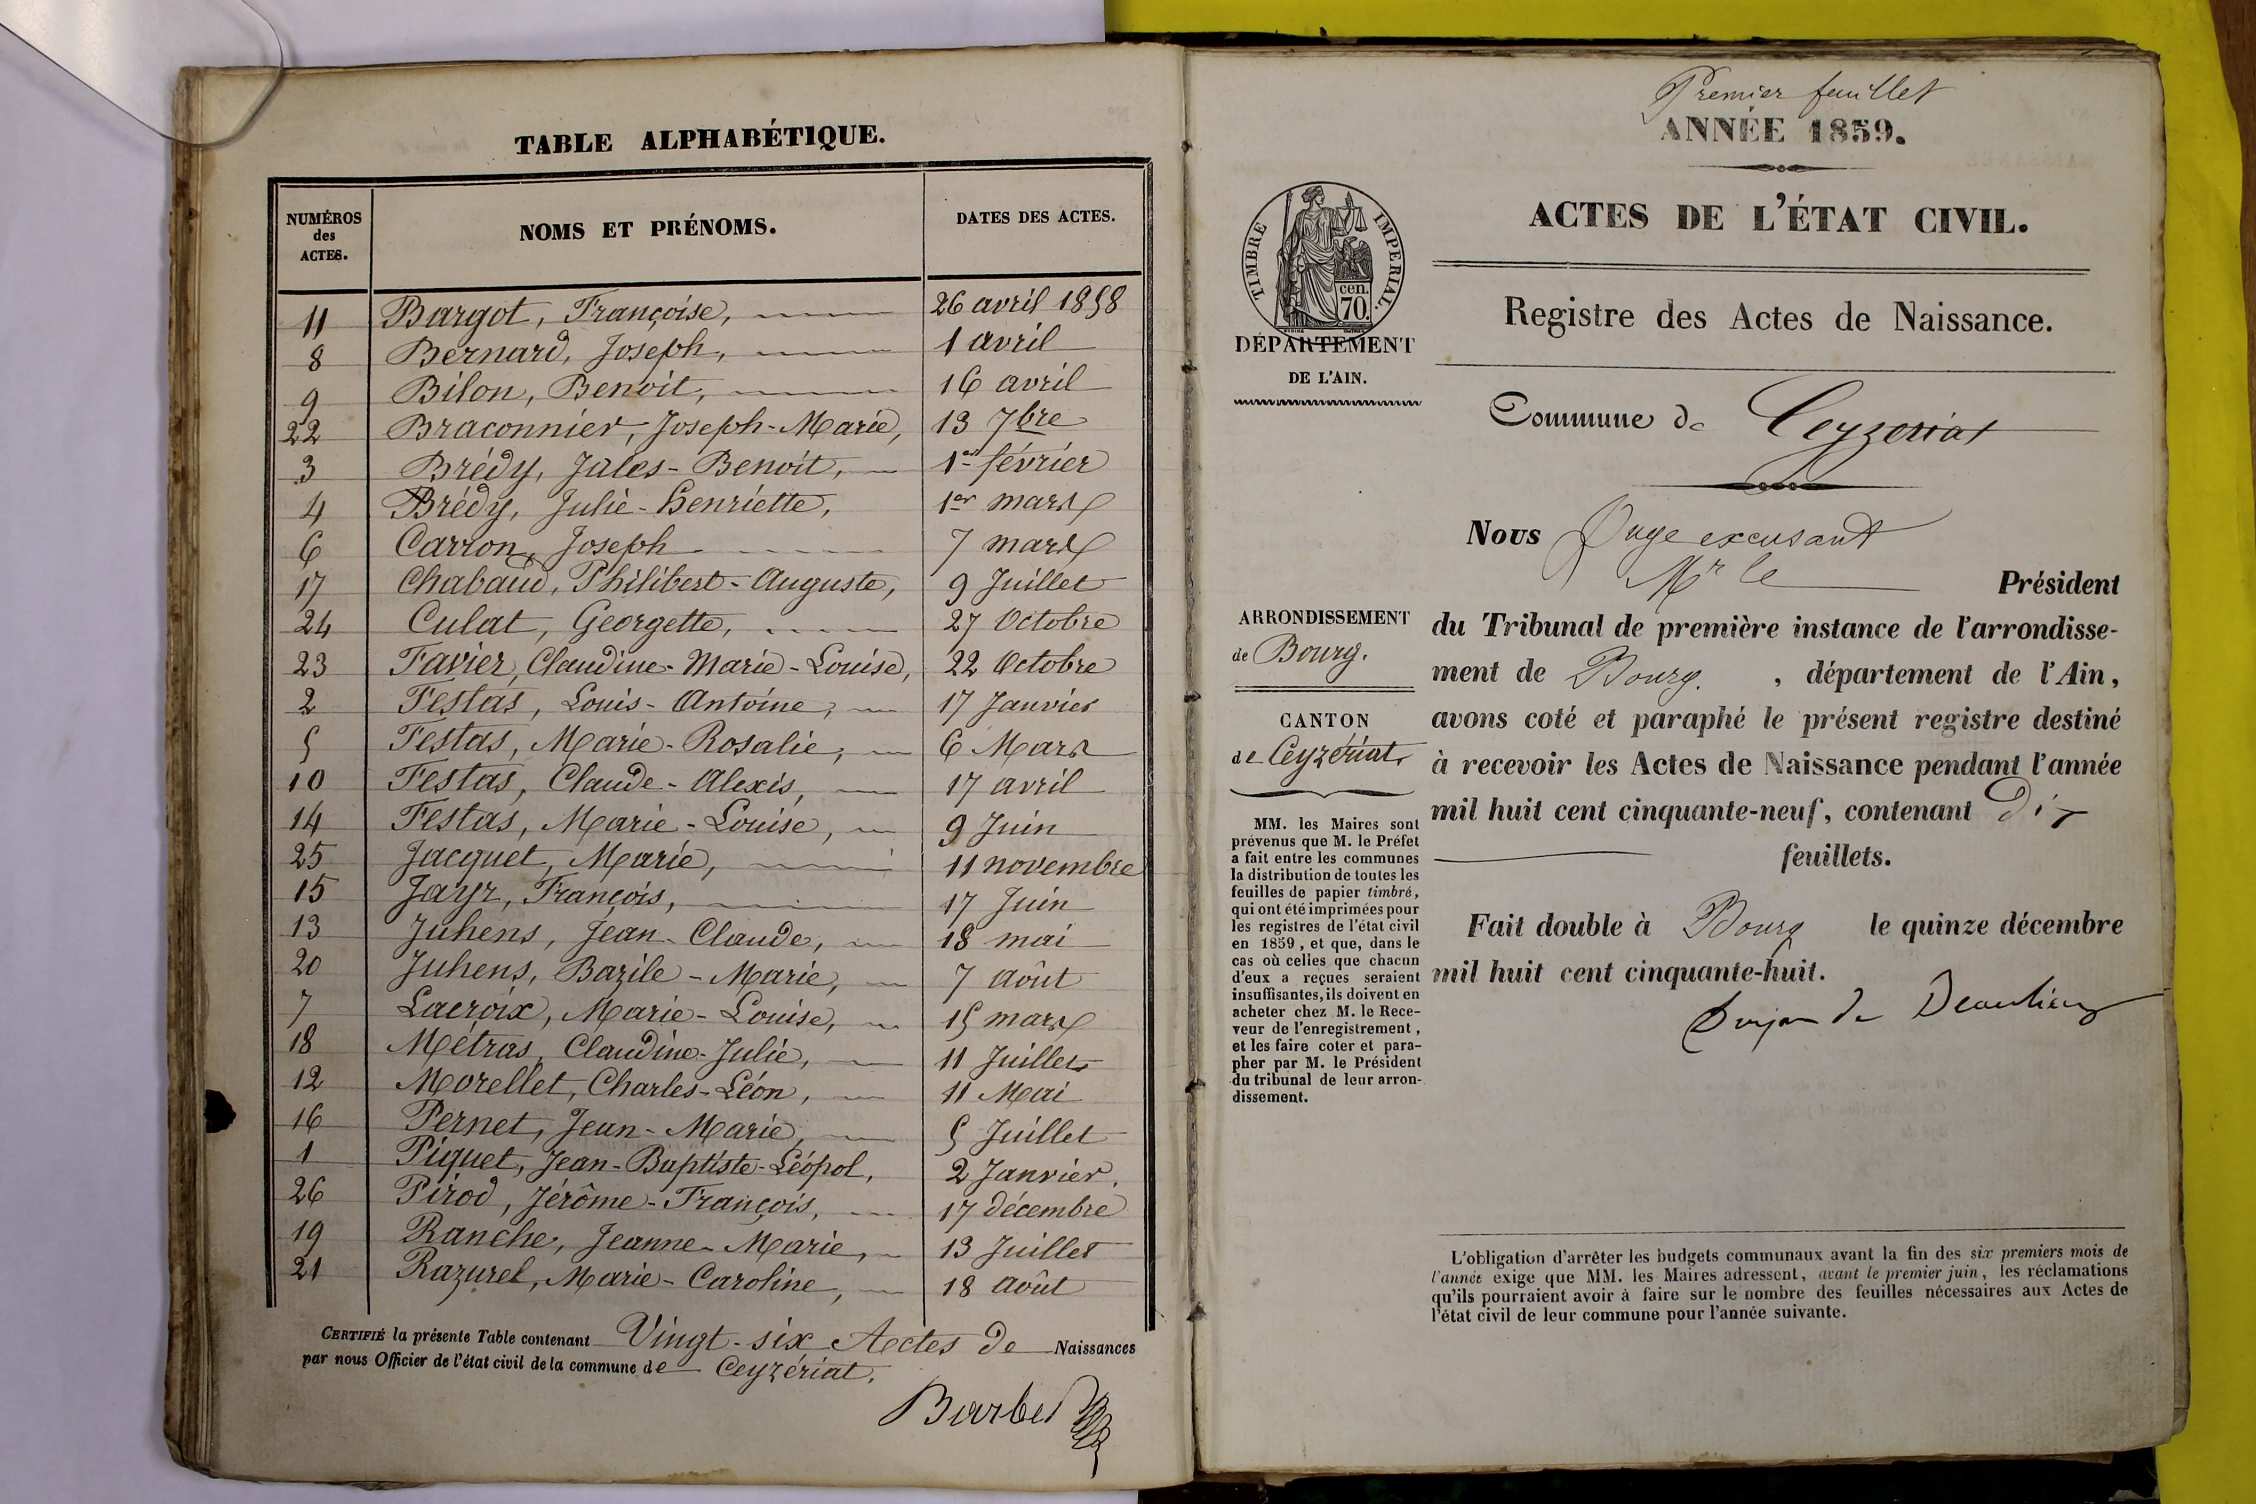 TABLE ALPHABÉTIQUE.
NUMÉROS des ACTES. NOMS ET PRÉNOMS. DATES DES ACTES.
11 Bargot, Françoise, 26 avril 1858
8 Bernard, Joseph, 1 avril
9 Bilon, Benoit, 16 avril
22 Braconnier, Joseph-Marie, 13 7bre
3 Brédy, Jules-Benoit, 1er février
4 Brédy, Julie-Henriette, 1er mars
6 Carron, Joseph 7 mars
17 Chabaud, Philibert-Auguste, 9 Juillet
24 Culat, Georgette, 27 Octobre
23 Favier, Claudine-Marie-Louise, 22 Octobre
2 Festas, Louis-Antoine, 17 Janvier
5 Festas, Marie-Rosalie, 6 Mars
10 Festas, Claude-Alexis, 17 avril
14 Festas, Marie-Louise, 9 Juin
25 Jacquet, Marie, 11 novembre
15 Jayr, François, 17 Juin
13 Juhens, Jean-Claude, 18 mai
20 Juhens, Bazile-Marie, 7 Août
7 Lacroix, Marie-Louise, 15 mars
18 Métras, Claudine-Julie, 11 Juillet
12 Morellet, Charles-Léon, 11 Mai
16 Pernet, Jean-Marie, 5 Juillet
1 Piquet, Jean-Baptiste-Léopol, 2 Janvier.
26 Pirod, Jérôme-François, 17 décembre
19 Ranche, Jeanne-Marie, 13 Juillet
21 Razurel, Marie-Caroline, 18 Août
CERTIFIÉ la présente Table contenant Vingt-six Actes de Naissances
par nous Officier de l'état civil de la commune de Ceyzériat.
Barbet
Premier feuillet
ANNÉE 1859.
ACTES DE L'ÉTAT CIVIL.
TIMBRE IMPERIAL.
cen.
70.
DÉPARTEMENT
DE L'AIN.
Registre des Actes de Naissance.
Commune de Ceyzeriat
Nous Juge excusant
Mr le Président
du Tribunal de première instance de l'arrondisse-
ment de Bourg. , département de l'Ain,
avons coté et paraphé le présent registre destiné
à recevoir les Actes de Naissance pendant l'année
mil huit cent cinquante-neuf, contenant Dix
feuillets.
Fait double à Bourg le quinze décembre
mil huit cent cinquante-huit.
ARRONDISSEMENT
de Bourg.
CANTON
de Ceyzériat
MM. les Maires sont
prévenus que M. le Préfet
a fait entre les communes
la distribution de toutes les
feuilles de papier timbré,
qui ont été imprimées pour
les registres de l'état civil
en 1859, et que, dans le
cas où celles que chacun
d'eux a reçues seraient
insuffisantes, ils doivent en
acheter chez M. le Rece-
veur de l'enregistrement,
et les faire coter et para-
pher par M. le Président
du tribunal de leur arron-
dissement.
L'obligation d'arrêter les budgets communaux avant la fin des six premiers mois de
l'année exige que MM. les Maires adressent, avant le premier juin, les réclamations
qu'ils pourraient avoir à faire sur le nombre des feuilles nécessaires aux Actes de
l'état civil de leur commune pour l'année suivante.